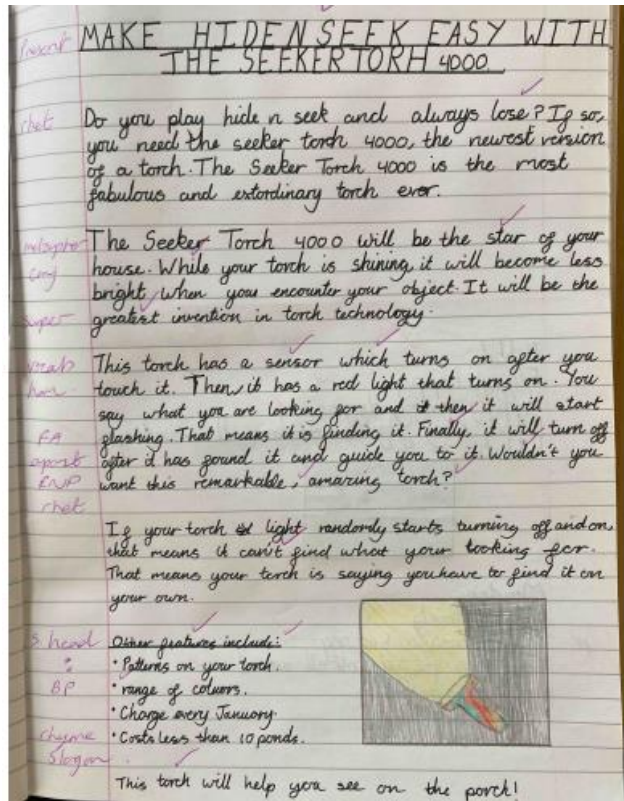 Present
MAKE HIDENSEEK EASY WITH
THE SEEKERTORH 4000
rhet
Do you play hide n seek and always lose? If so,
you need the seeker torch 4000, the newest version
of a torch. The Seeker Torch 4000 is the most
fabulous and extordinary torch ever.
metaphor
The Seeker Torch 4000 will be the star of your
conj
house. While your torch is shining, it will become less
bright when you encounter your object. It will be the
super
greatest invention in torch technology.
This torch has a sensor which turns on after you
touch it. Then, it has a red light that turns on. You
say what you are looking for and then it will start
FA
flashing. That means it is finding it. Finally, it will turn off
apost
after it has found it and guide you to it. Wouldn't you
ENP
want this remarkable, amazing torch?
rhet
If your torch light randomly starts turning off and on,
that means it can't find what your looking for.
That means your torch is saying you have to find it on
your own.
s head
Other features include:
:
• Patterns on your torch.
BP
• range of colours.
• Charge every January.
rhyme
• Costs less than 10 ponds.
Slogan
This torch will help you see on the porch!